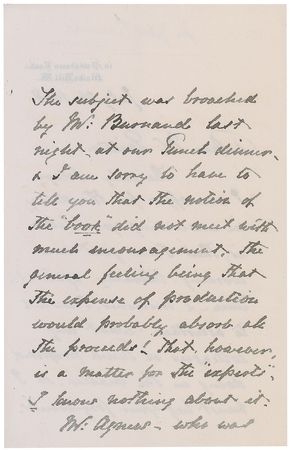 The subject was broached
by Mr: Burnand last
night at our Punch dinner
& I am sorry to have to
tell you that the notion of
the "book" did not meet with
much encouragement, the
general feeling being that
the expense of production
would probably absorb all
the proceeds! That, however,
is a matter for the "experts".
I know nothing about it.
Mr: Agnew - who was